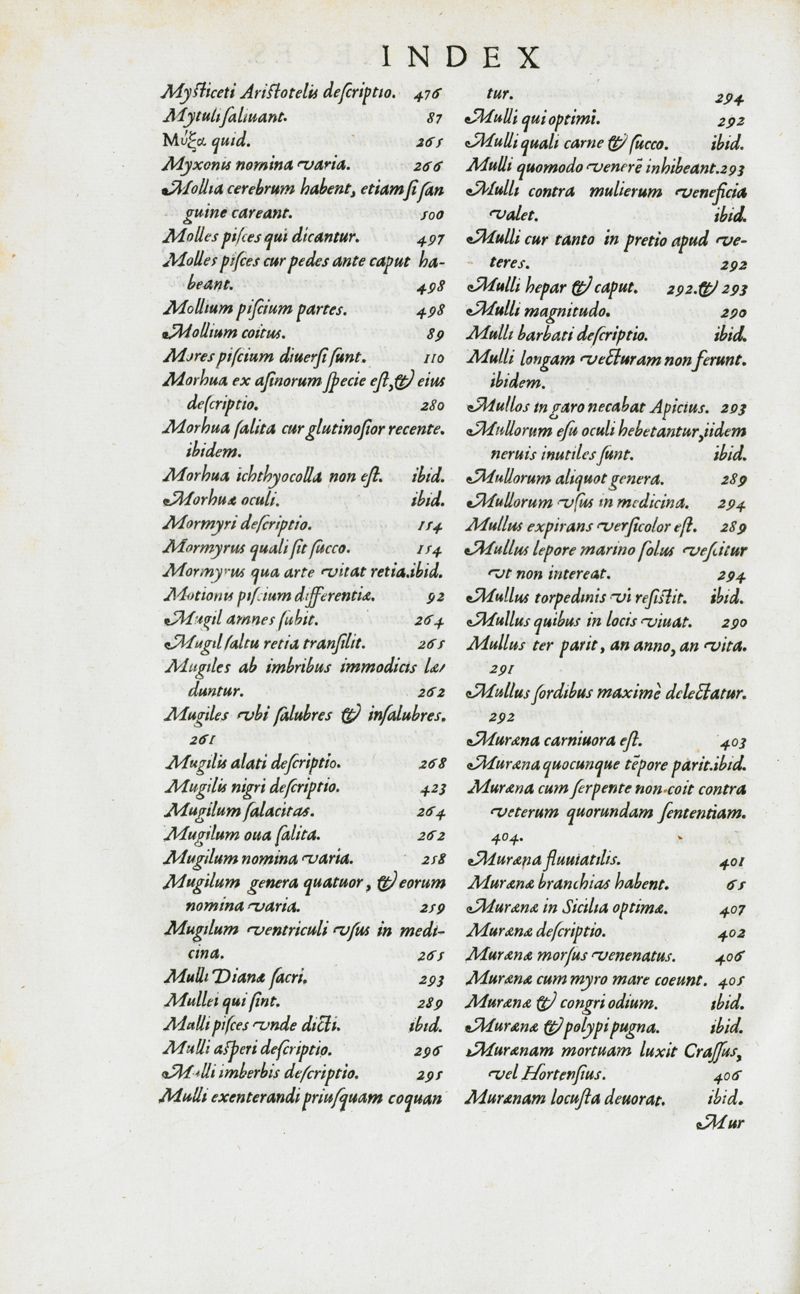 INDEX
Myſticeti Ariſtotelis deſcriptio. 476
Mytuli ſaliuant. 87
Μύξα quid. 265
Myxonis nomina varia. 266
Mollia cerebrum habent, etiamſi ſan
guine careant. 500
Molles piſces qui dicantur. 497
Molles piſces cur pedes ante caput ha-
beant. 498
Mollium piſcium partes. 498
Mollium coitus. 89
Mores piſcium diuerſi ſunt. 110
Morhua ex aſinorum ſpecie eſt, & eius
deſcriptio. 280
Morhua ſalita cur glutinoſior recente.
ibidem.
Morhua ichthyocolla non eſt. ibid.
Morhuæ oculi. ibid.
Mormyri deſcriptio. 154
Mormyrus quali ſit ſucco. 154
Mormyrus qua arte vitat retia.ibid.
Motionis piſcium differentiæ. 92
Mugil amnes ſubit. 264
Mugil ſaltu retia tranſilit. 265
Mugiles ab imbribus immodicis læ-
duntur. 262
Mugiles vbi ſalubres & inſalubres.
261
Mugilis alati deſcriptio. 268
Mugilis nigri deſcriptio. 423
Mugilum ſalacitas. 264
Mugilum oua ſalita. 262
Mugilum nomina varia. 258
Mugilum genera quatuor, & eorum
nomina varia. 259
Mugilum ventriculi vſus in medi-
cina. 265
Mulli Dianæ ſacri. 293
Mullei qui ſint. 289
Mulli piſces vnde dicti. ibid.
Mulli aſperi deſcriptio. 296
Mulli imberbis deſcriptio. 295
Mulli exenterandi priuſquam coquan
tur. 294
Mulli qui optimi. 292
Mulli quali carne & ſucco. ibid.
Mulli quomodo venerē inhibeant.293
Mulli contra mulierum veneficia
valet. ibid.
Mulli cur tanto in pretio apud ve-
teres. 292
Mulli hepar & caput. 292.& 293
Mulli magnitudo. 290
Mulli barbati deſcriptio. ibid.
Mulli longam vecturam non ferunt.
ibidem.
Mullos in garo necabat Apicius. 293
Mullorum eſu oculi hebetantur,iidem
neruis inutiles ſunt. ibid.
Mullorum aliquot genera. 289
Mullorum vſus in medicina. 294
Mullus expirans verſicolor eſt. 289
Mullus lepore marino ſolus veſcitur
vt non intereat. 294
Mullus torpedinis vi reſiſtit. ibid.
Mullus quibus in locis viuat. 290
Mullus ter parit, an anno, an vita.
291
Mullus ſordibus maximè delectatur.
292
Muræna carniuora eſt. 403
Muræna quocunque tēpore parit.ibid.
Muræna cum ſerpente non coit contra
veterum quorundam ſententiam.
404.
Muræna fluuiatilis. 401
Murænæ branchias habent. 65
Murænæ in Sicilia optimæ. 407
Murænæ deſcriptio. 402
Murænæ morſus venenatus. 406
Murænæ cum myro mare coeunt. 405
Murænæ & congri odium. ibid.
Murænæ & polypi pugna. ibid.
Murænam mortuam luxit Craſſus,
vel Hortenſius. 406
Murænam locuſta deuorat. ibid.
Mur